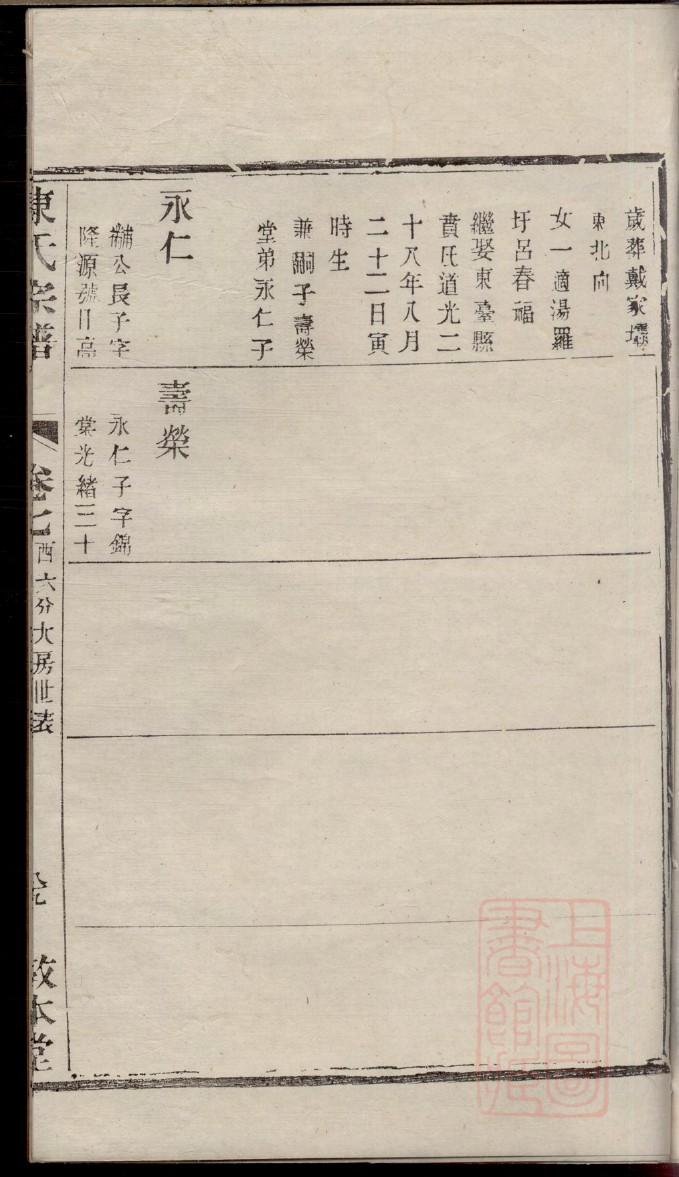 歲葬戴家壩
東北向
女一適湯羅
圩呂春福
繼娶東臺縣
賁氏道光二
十八年八月
二十二日寅
時生
兼嗣子壽榮
堂弟永仁子
永仁
黼公長子字
隆源號日高
壽榮
永仁子字錦
棠光緒三十
陳氏宗譜
卷七
酉六分大房世表
敦本堂
上海圖
書館